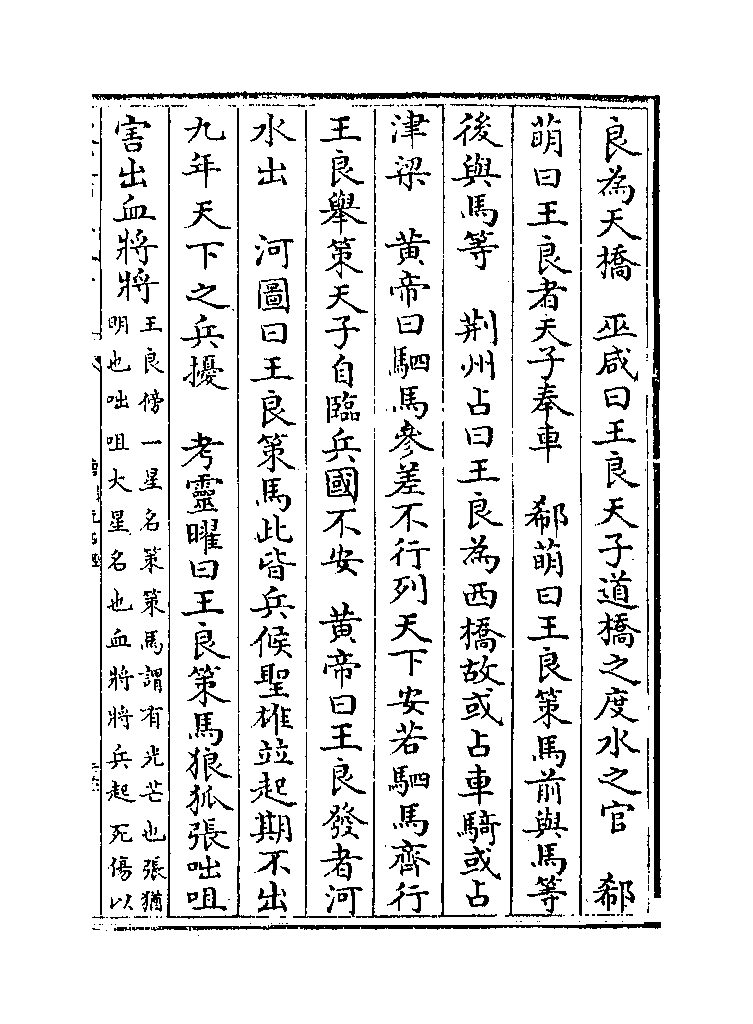 良為天橋　巫咸曰王良天子道橋之度水之官　郗
萌曰王良者天子奉車　郗萌曰王良策馬前與馬等
後與馬等　荆州占曰王良為西橋故或占車騎或占
津梁　黃帝曰駟馬參差不行列天下安若駟馬齊行
王良舉策天子自臨兵國不安　黃帝曰王良發者河
水出　河圖曰王良策馬此皆兵候聖雄並起期不出
九年天下之兵擾　考靈曜曰王良策馬狼狐張咄咀
害出血將將
王良傍一星名策策馬謂有光芒也張猶
明也咄咀大星名也血將將兵起死傷以